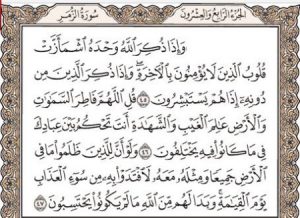 الجزء الرابع والعشرون
سورة الزمر
وَإِذَا ذُكِرَ ٱللَّهُ وَحْدَهُ ٱشْمَأَزَّتْ
قُلُوبُ ٱلَّذِينَ لَا يُؤْمِنُونَ بِٱلْـَٔاخِرَةِ ۖ وَإِذَا ذُكِرَ ٱلَّذِينَ مِن
دُونِهِۦٓ إِذَا هُمْ يَسْتَبْشِرُونَ ٤٥ قُلِ ٱللَّهُمَّ فَاطِرَ ٱلسَّمَٰوَٰتِ
وَٱلْأَرْضِ عَٰلِمَ ٱلْغَيْبِ وَٱلشَّهَٰدَةِ أَنتَ تَحْكُمُ بَيْنَ عِبَادِكَ
فِى مَا كَانُوا۟ فِيهِ يَخْتَلِفُونَ ٤٦ وَلَوْ أَنَّ لِلَّذِينَ ظَلَمُوا۟ مَا فِى
ٱلْأَرْضِ جَمِيعًا وَمِثْلَهُۥ مَعَهُۥ لَٱفْتَدَوْا۟ بِهِۦ مِن سُوٓءِ ٱلْعَذَابِ
يَوْمَ ٱلْقِيَٰمَةِ ۚ وَبَدَا لَهُم مِّنَ ٱللَّهِ مَا لَمْ يَكُونُوا۟ يَحْتَسِبُونَ ٤٧